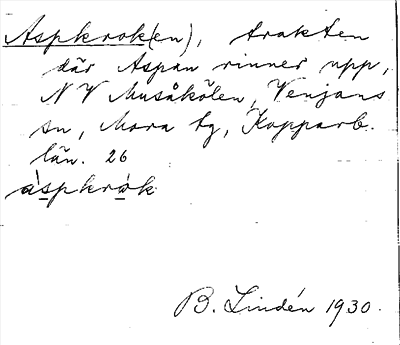 Aspkrok(en), trakten
där Aspan rinner upp,
NV Musåkölen, Venjans
sn, Mora tg, Kopparb.
län. 26
àspkrὼk
B. Lindén 1930.